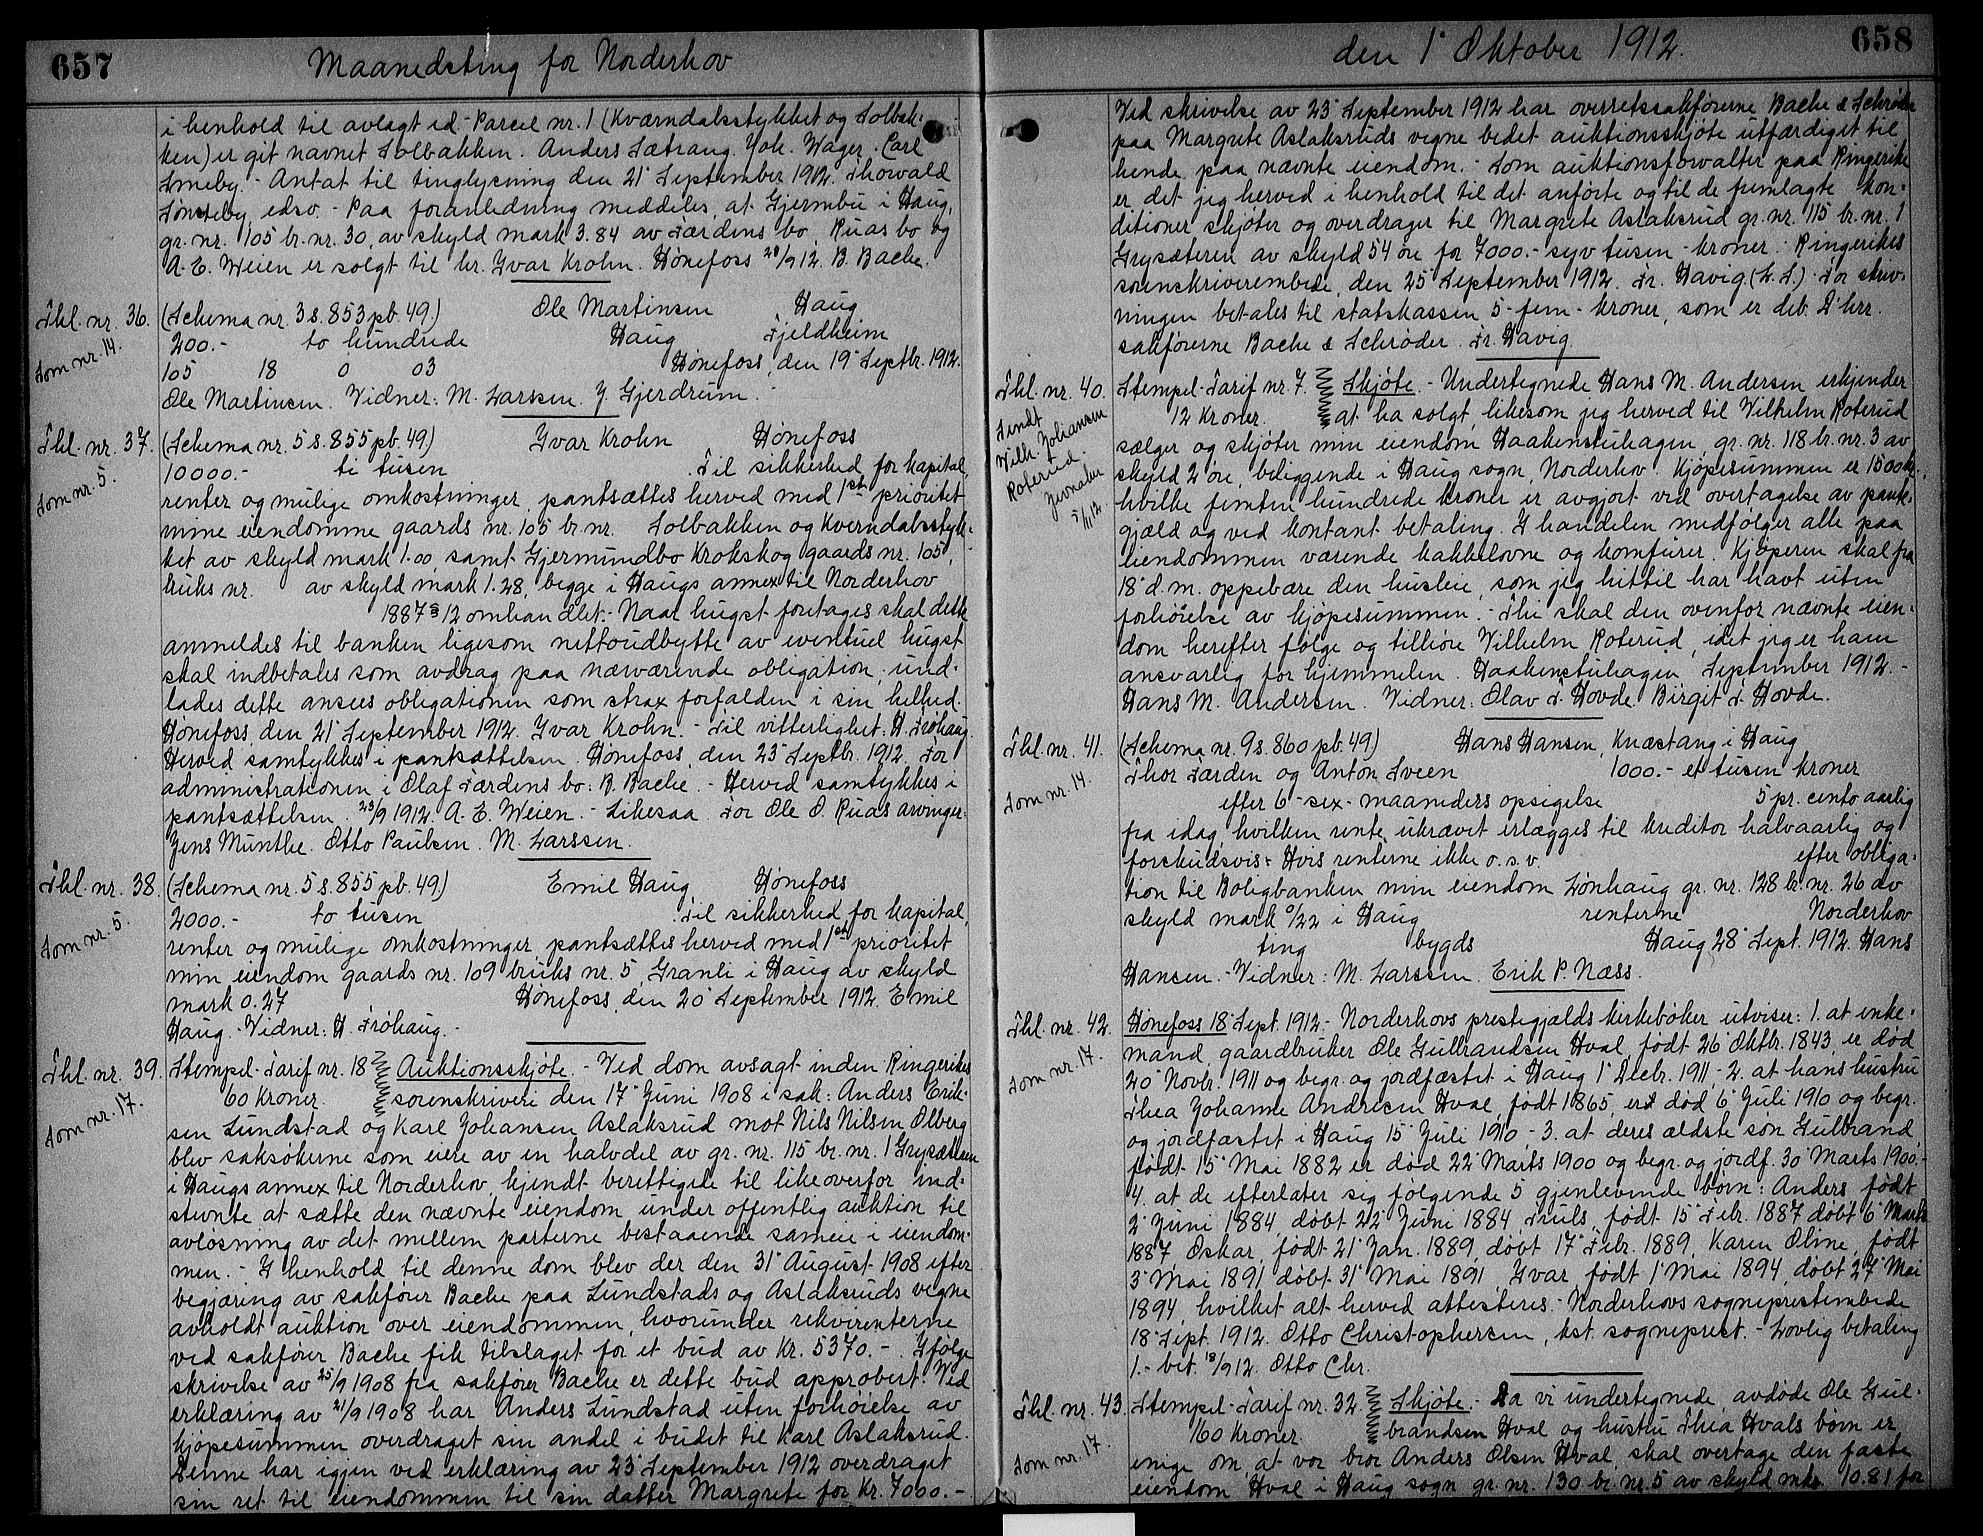 657
Maanedsting for Norderhov
i henhold til avlagt ed. - Parcel nr. 1 (Kværndalsstykket og Solbak-
ken) er git navnet Solbakken. Anders Sætrang. Joh. Wager. Carl
Smeby. - Antat til tinglysning den 21 September 1912. Thorvald
Sønsteby, edsv. - Paa foranledning meddeles, at Gjermbu i Haug,
gr. nr. 105 br. nr. 30, av skyld mark 3.84 av Færdens bo, Ruas bo og
A. E. Weien er solgt til hr. Yvar Krohn. Hønefoss 20/9 12. B. Bache.
Thl. nr. 36. (Schema nr. 3 s. 853 pb. 49.) Ole Martinsen Haug
Som nr. 14. 200.- to hundrede Haug Fjeldheim
105 18 0 03 Hønefoss, den 19 Septbr. 1912.
Ole Martinsen. Vidner: M. Larssen. J. Gjerdrum.
Thl. nr. 37. (Schema nr. 5 s. 855 pb. 49) Yvar Krohn Hønefoss
Som nr. 5. 10000.- ti tusen Til sikkerhed for kapital,
renter og mulige omkostninger, pantsættes herved med 1st prioritet
mine eiendomme gaards nr. 105 br. nr. Solbakken og Kverndalsstyk-
ket av skyld mark 1.00, samt Gjermundbo Krokskog gaards nr. 105,
bruks nr. av skyld mark 1.28, begge i Haugs annex til Norderhov
1887 § 12 omhandlet. - Naar hugst foretages skal dette
anmeldes til banken ligesom nettoudbytte av eventuel hugst
skal indbetales som avdrag paa nærværende obligation, und-
lades dette ansees obligationen som strax forfalden i sin helhed.
Hønefoss, den 21 September 1912. Yvar Krohn. - Til vitterlighet: H. Frøhaug.
Herved samtykkes i pantsættelsen. Hønefoss, den 23 Septbr. 1912. For
administrationen i Olaf Færdens bo: B. Bache. - Herved samtykkes i
pantsættelsen. 23/9 1912. A. E. Weien. - Likesaa. For Ole O. Ruas arvinger:
Jens Munthe. Otto Paulsen. M. Larssen.
Thl. nr. 38. (Schema nr. 5 s. 855 pb. 49.) Emil Haug Hønefoss
Som nr. 5. 2000.- to tusen Til sikkerhed for kapital,
renter og mulige omkostninger, pantsættes herved med 1st prioritet
min eiendom gaards nr. 109 bruks nr. 5, Granli i Haug av skyld
mark 0.27 Hønefoss, den 20 September 1912. Emil
Haug. - Vidner: H. Frøhaug. -
Thl. nr. 39. Stempel-Tarif nr. 18 Auktionsskjøte. - Ved dom avsagt inden Ringerikes
Som nr. 17. 60 Kroner. sorenskriveri den 17 Juni 1908 i sak: Anders Erik-
sen Lundstad og Karl Johansen Aslaksrud mot Nils Nilsen Ølberg
blev saksøkerne som eiere av en halvdel av gr. nr. 115 br. nr. 1 Grysæteren
i Haugs annex til Norderhov, kjendt berettigede til likeoverfor ind-
stevnte at sætte den nævnte eiendom under offentlig auktion til
avløsning av det mellem parterne bestaaende sameie i eiendom-
men. - I henhold til denne dom blev der den 31 August 1908 efter
begjæring av sakfører Bache paa Lundstads og Aslaksruds vegne
avholdt auktion over eiendommen, hvorunder rekvirenterne
ved sakfører Bache fik tilslaget for et bud av Kr. 5370. - . Ifølge
skrivelse av 25/9 1908 fra sakfører Bache er dette bud approbert. Ved
erklæring av 21/9 1908 har Anders Lundstad uten forhøielse av
kjøpesummen overdraget sin andel i budet til Karl Aslaksrud.
Denne har igjen ved erklæring av 23 September 1912 overdraget
sin ret til eiendommen til sin datter Margrete for Kr. 7000. -
den 1 Oktober 1912.
658
Ved skrivelse av 23 September 1912 har overretssakførerne Bache & Schrøder
paa Margrete Aslaksruds vegne bedet auktionsskjøte utfærdiget til
hende paa nævnte eiendom. - Som auktionsforvalter paa Ringerike
er det jeg herved i henhold til det anførte og til de fremlagte kon-
ditioner skjøter og overdrager til Margrete Aslaksrud gr. nr. 115 br. nr. 1
Grysæteren av skyld 54 øre for 7000.- syv tusen - kroner. - Ringerikes
sorenskriverembede, den 25 September 1912. Fr. Havig. (L. S.) - For skriv-
ningen betales til statskassen 5 - fem - kroner, som er deb. D'hrr.
sakførerne Bache & Schrøder. Fr. Havig.
Thl. nr. 40. Stempel-Tarif nr. 7. Skjøte. - Undertegnede Hans M. Andersen erkjender
12 Kroner. at ha solgt, likesom jeg herved til Wilhelm Roterud
Sendt
Wilh. Johansen
Roterud.
Jevnaker
5/11 12.
sælger og skjøter min eiendom Haakenstuhagen, gr. nr. 118 br. nr. 3 av
skyld 2 øre, beliggende i Haug sogn, Norderhov. Kjøpesummen er 1500 kr.
hvilke femten hundrede kroner er avgjort ved overtagelse av pante-
gjæld og ved kontant betaling. I handelen medfølger alle paa
eiendommen værende kakkelovne og komfurer. Kjøperen skal fra
18 d. m. oppebære den husleie, som jeg hittil har havt uten
forhøielse av kjøpesummen. - Thi skal den ovenfor nævnte eien-
dom herefter følge og tilhøre Wilhelm Roterud, idet jeg er ham
ansvarlig for hjemmelen. Haakenstuhagen September 1912. -
Hans M. Andersen. Vidner: Olav T. Hovde. Birgit T. Hovde.
Thl. nr. 41. (Schema nr. 9 s. 860 pb. 49) Hans Hansen, Knæstang i Haug
Som nr. 14. Thor Færden og Anton Sveen 1000.- et tusen kroner
efter 6 - sex - maaneders opsigelse 5 pr. cento aarlig
fra idag, hvilken rente ukrævet erlægges til kreditor halvaarlig og
forskudsvis: Hvis renterne ikke o. s. v. efter obliga-
tion til Boligbanken min eiendom Lønhaug gr. nr. 128 br. nr. 26 av
skyld mark 0/22 i Haug renterne Norderhov
ting bygds Haug 28 Sept. 1912. Hans
Hansen. - Vidner: M. Larssen. Erik P. Næss.
Thl. nr. 42. Hønefoss 18 Sept. 1912. - Norderhovs prestegjælds kirkebøker utviser: 1. at enke-
Som nr. 17. mand, gaardbruker Ole Gulbrandsen Hval, født 26 Oktbr. 1843, er død
20 Novbr. 1911 og begr. og jordfæstet i Haug 1 Decbr. 1911, - 2. at hans hustru
Thea Johanne Andresen Hval, født 1865, er død 6 Juli 1910 og begr.
og jordfæstet i Haug 15 Juli 1910, - 3. at deres ældste søn Gulbrand,
født 15 Mai 1882 er død 22 Marts 1900 og begr. og jordf. 30 Marts 1900. -
4. at de efterlater sig følgende 5 gjenlevende børn: Anders, født
2 Juni 1884, døbt 22 Juni 1884, Truls, født 15 Febr. 1887 døbt 6 Marts
1887, Oskar, født 21 Jan. 1889, døbt 17 Febr. 1889, Karen Oline, født
3 Mai 1891 døbt 31 Mai 1891, Ivar, født 1 Mai 1894, døbt 27 Mai
1894, hvilket alt herved attesteres. - Norderhovs sogneprestembede
18 Sept. 1912. Otto Christophersen, kst. sogneprest. - Lovlig betaling
1.- bet. 18/9 12. Otto Chr.
Thl. nr. 43. Stempel-Tarif nr. 32. Skjøte. - Da vi undertegnede, avdøde Ole Gul-
Som nr. 17. 160 Kroner. brandsen Hval og hustru Thea Hvals børn er
enige om, at vor bror Anders Olsen Hval, skal overtage den faste
eiendom Hval i Haug sogn gr. nr. 130 br. nr. 5 av skyld mk. 10.81 for